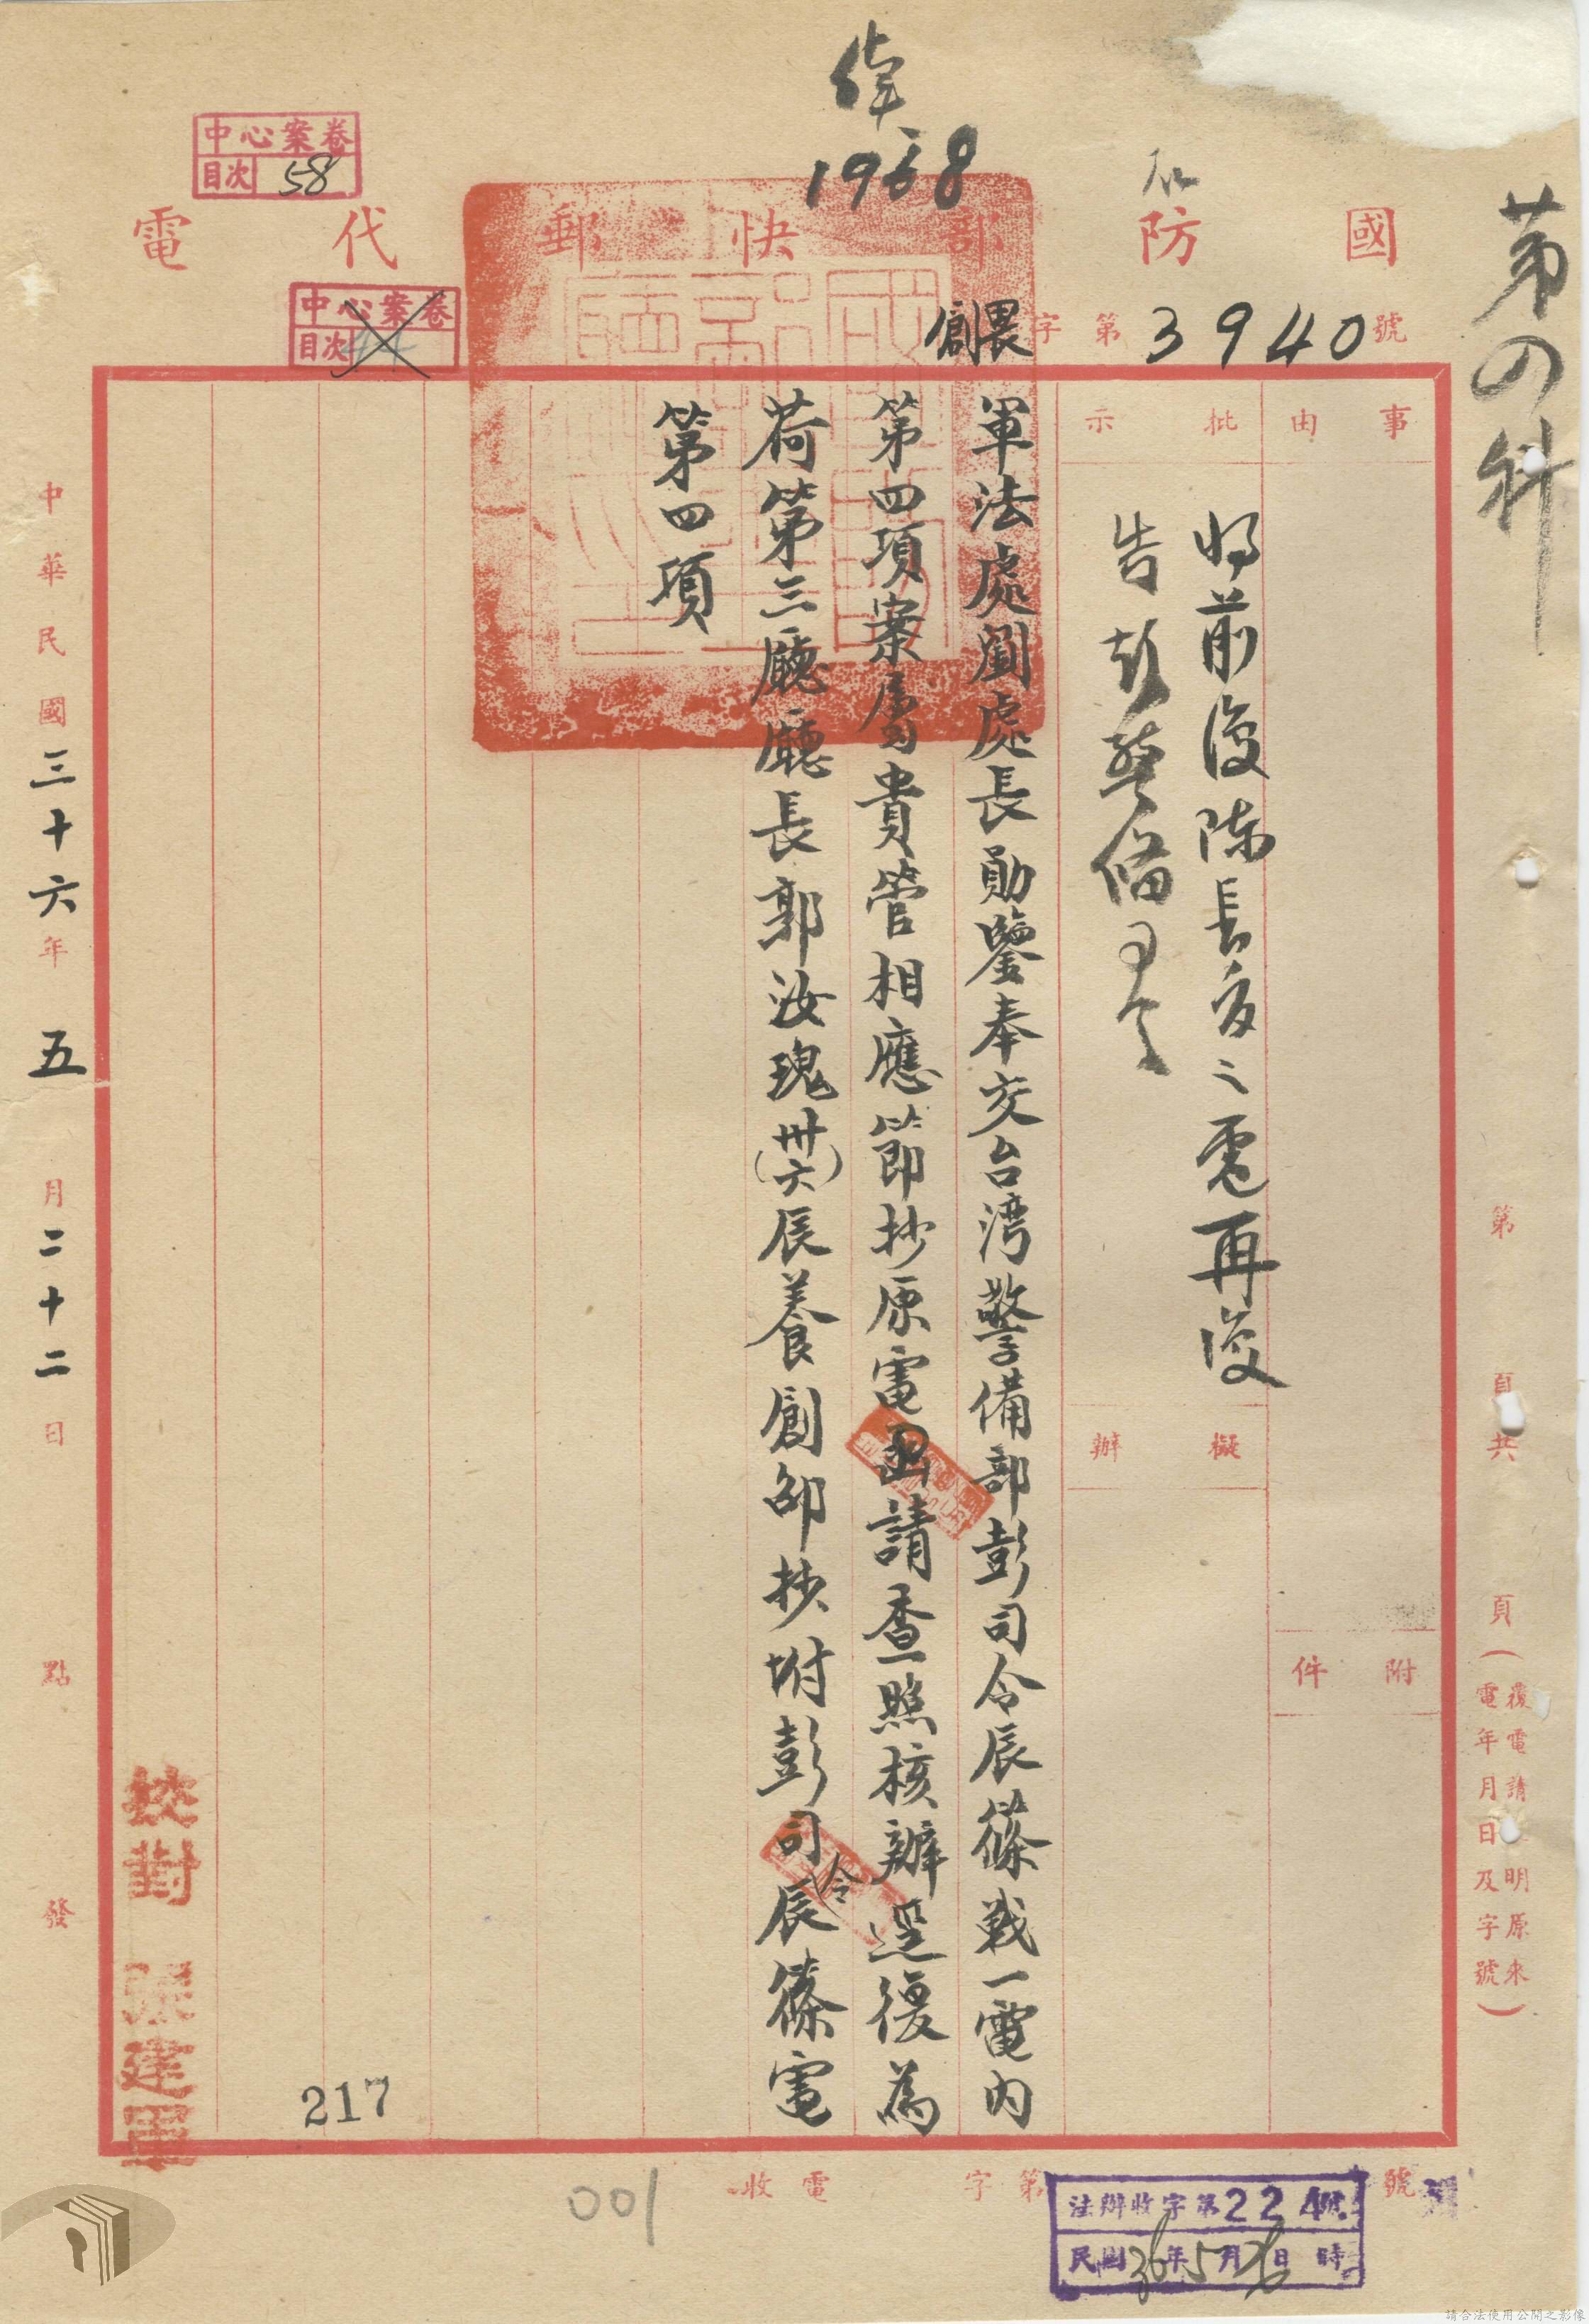 第四科
偉
1968
中心案卷
目次 58
國防部快郵代電
中心案卷
目次
創畏字第3940號
事由
批示
擬辦
附件
将前復陳長官之電再復
告彭警備司令
軍法處劉處長勛鑒奉交台湾警備部彭司令辰篠戰一電內
第四項案屬貴管相應節抄原電函請查照核辦逕復為
荷第三廳廳長郭汝瑰(卅六)辰養創邵抄坿彭司令辰篠電
第四項
中華民國三十六年五月二十二日點發
校對 張建軍
217
第頁共頁(覆電請註明原來電年月日及字號)
收電字第號
001
法辦收字第224號
民國36年5月26日時
請合法使用公開之影像